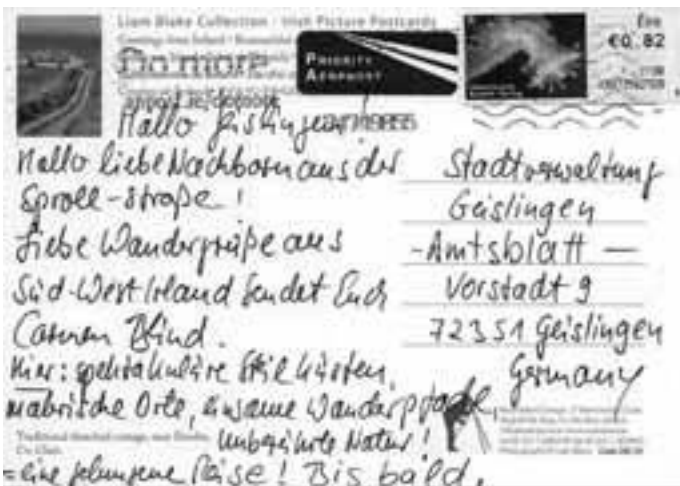 Liam Blake Collection · Irish Picture Postcards
Do more
PRIORITY
AERPHOST
Éire
€0.82
Hallo Geislingen!
Hallo liebe Nachbarn aus der
Sproll-Straße!
Liebe Wandergrüße aus
Süd-West Irland sendet Euch
Carmen Blind.
Hier: spektakuläre Steilküsten,
malerische Orte, einsame Wanderpfade,
unberührte Natur!
= eine gelungene Reise! Bis bald.
Stadtverwaltung
Geislingen
-Amtsblatt-
Vorstadt 9
72351 Geislingen
Germany